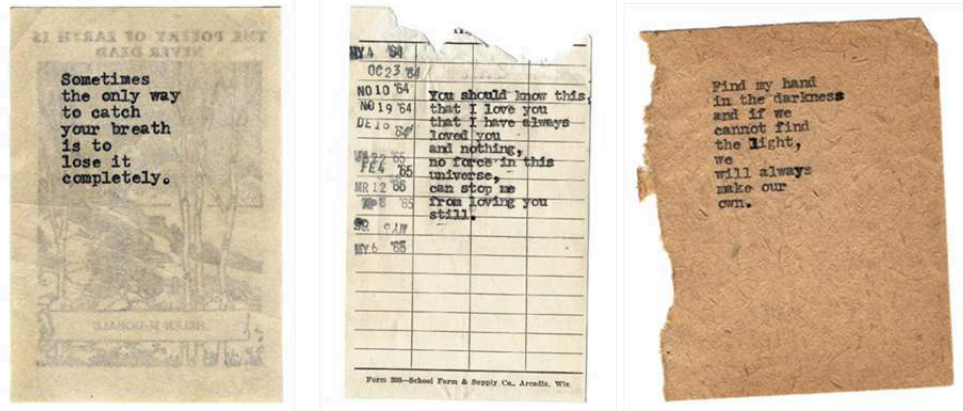 THE POETRY OF EARTH IS
NEVER DEAD
Sometimes
the only way
to catch
your breath
is to
lose it
completely.
HELEN McDONALD
MY 4 '64
OC 23 '64
NO 10 '64
NO 19 '64
DE 16 '64
'65
FE 4 '65
MR 12 '65
'65
MY 6 '65
You should know this,
that I love you
that I have always
loved you
and nothing,
no force in this
universe,
can stop me
from loving you
still.
Form 300—School Form & Supply Co., Arcadia, Wis.
Find my hand
in the darkness
and if we
cannot find
the light,
we
will always
make our
own.